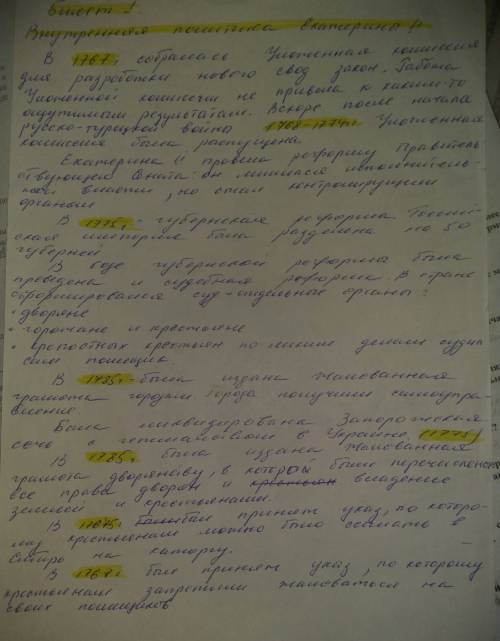 Билет 1
Внутренняя политика Екатерины II
В 1767г собралась Уложенная комиссия
для разработки нового свод закон. Работа
Уложенной комиссии не привела к каким-то
ощутимым результатам. Вскоре после начала
русско-турецкой войны 1768-1774гг Уложенная
комиссия была распущена
Екатерина II провела реформу Правитель
ствующего Сената: он лишился исполнитель-
ной власти, но стал контролирующим
органом
В 1775г - губернская реформа. Россий-
ская империя была разделена на 50
губерний
В ходе губернской реформы была
проведена и судебная реформа. В стране
сформировался суд - отдельные органы:
• дворяне
• горожане и крестьяне
• крепостных крестьян по мелким делам судил
сам помещик.
В 1785г - была издана Жалованная
грамота городам. Города получили самоупра-
вление.
Была ликвидирована Запорожская
сечь с гетманством в Украине (1775)
В 1785г. была издана Жалованная
грамота дворянству, в которой были перечислены
все права дворян и крестьян владение
землей и крестьянами.
В 1765г был принят указ, по которо-
му крестьянами можно было ссылать в
Сибирь на каторгу.
В 1767г был принят указ, по которому
крестьянам запретили жаловаться на
своих помещиков